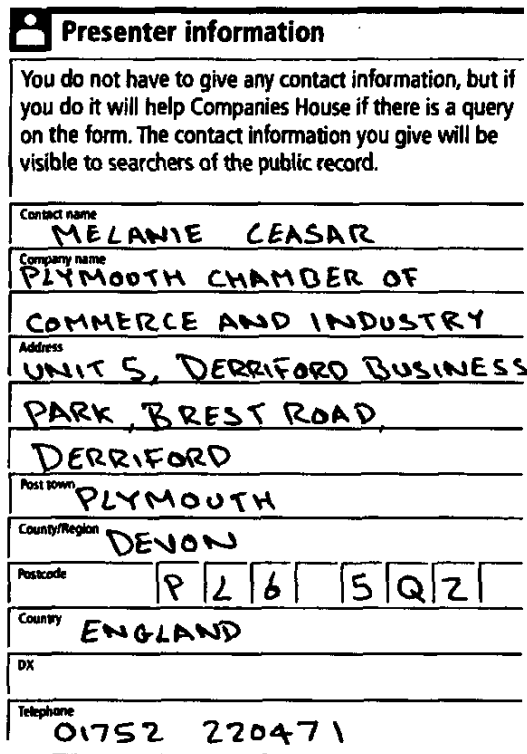 Presenter information
You do not have to give any contact information, but if
you do it will help Companies House if there is a query
on the form. The contact information you give will be
visible to searchers of the public record.
Contact name
MELANIE CEASAR
Company name
PLYMOOTH CHAMBER OF
COMMERCE AND INDUSTRY
Address
UNIT 5, DERRIFORD BUSINESS
PARK, BREST ROAD,
DERRIFORD
Post town
PLYMOUTH
County/Region
DEVON
Postcode
PL6 5QZ
Country
ENGLAND
DX
Telephone
01752 220471